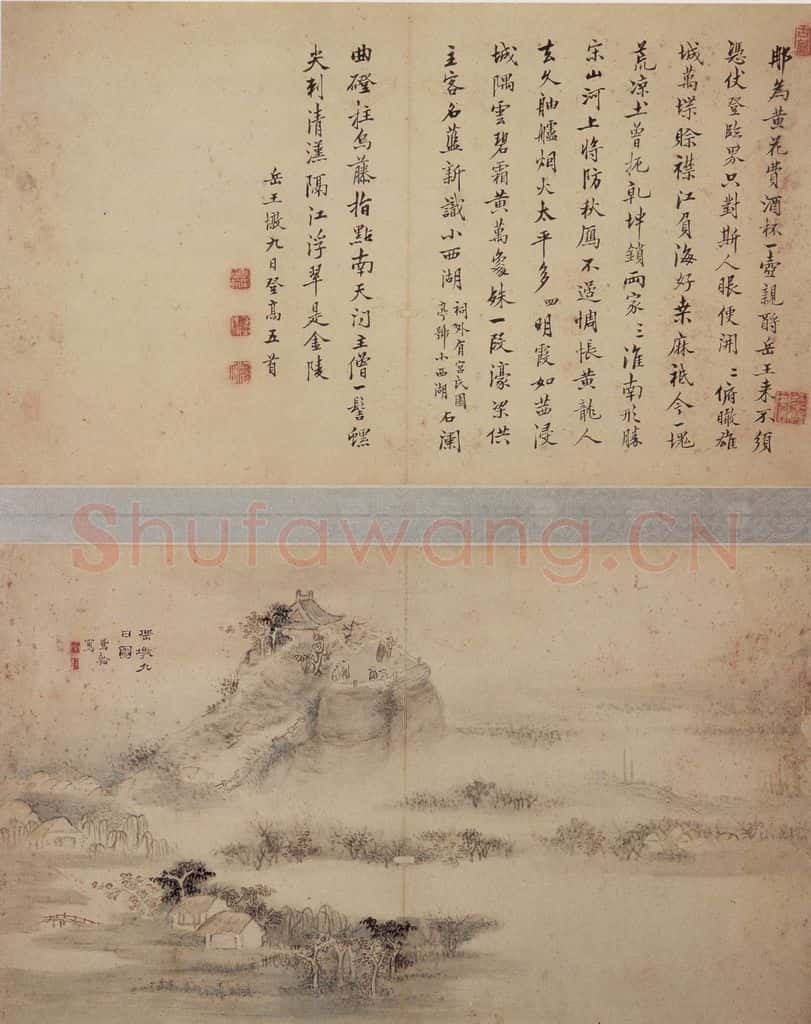 那為黃花費酒杯一壺親酹岳王来不須
憑仗登臨眾只對斯人眼便開二俯瞰雄
城萬堞賒襟江負海好桑麻祗今一塊
荒凉土曾扼乾坤鎖兩家三淮南形勝
宋山河上將防秋鳫不過惆悵黃龍人
去久舳艫烟火太平多四明霞如茜浸
城隅雲碧霜黃萬象殊一段濠梁供
主客名藍新識小西湖祠外有宮民園亭號小西湖石闌
曲磴拄烏藤指點南天問主僧一髻螺
尖刺清漢隔江浮翠是金陵
岳王墩九日登高五首
Shufawang.CN
岳墩九
日圖
寫